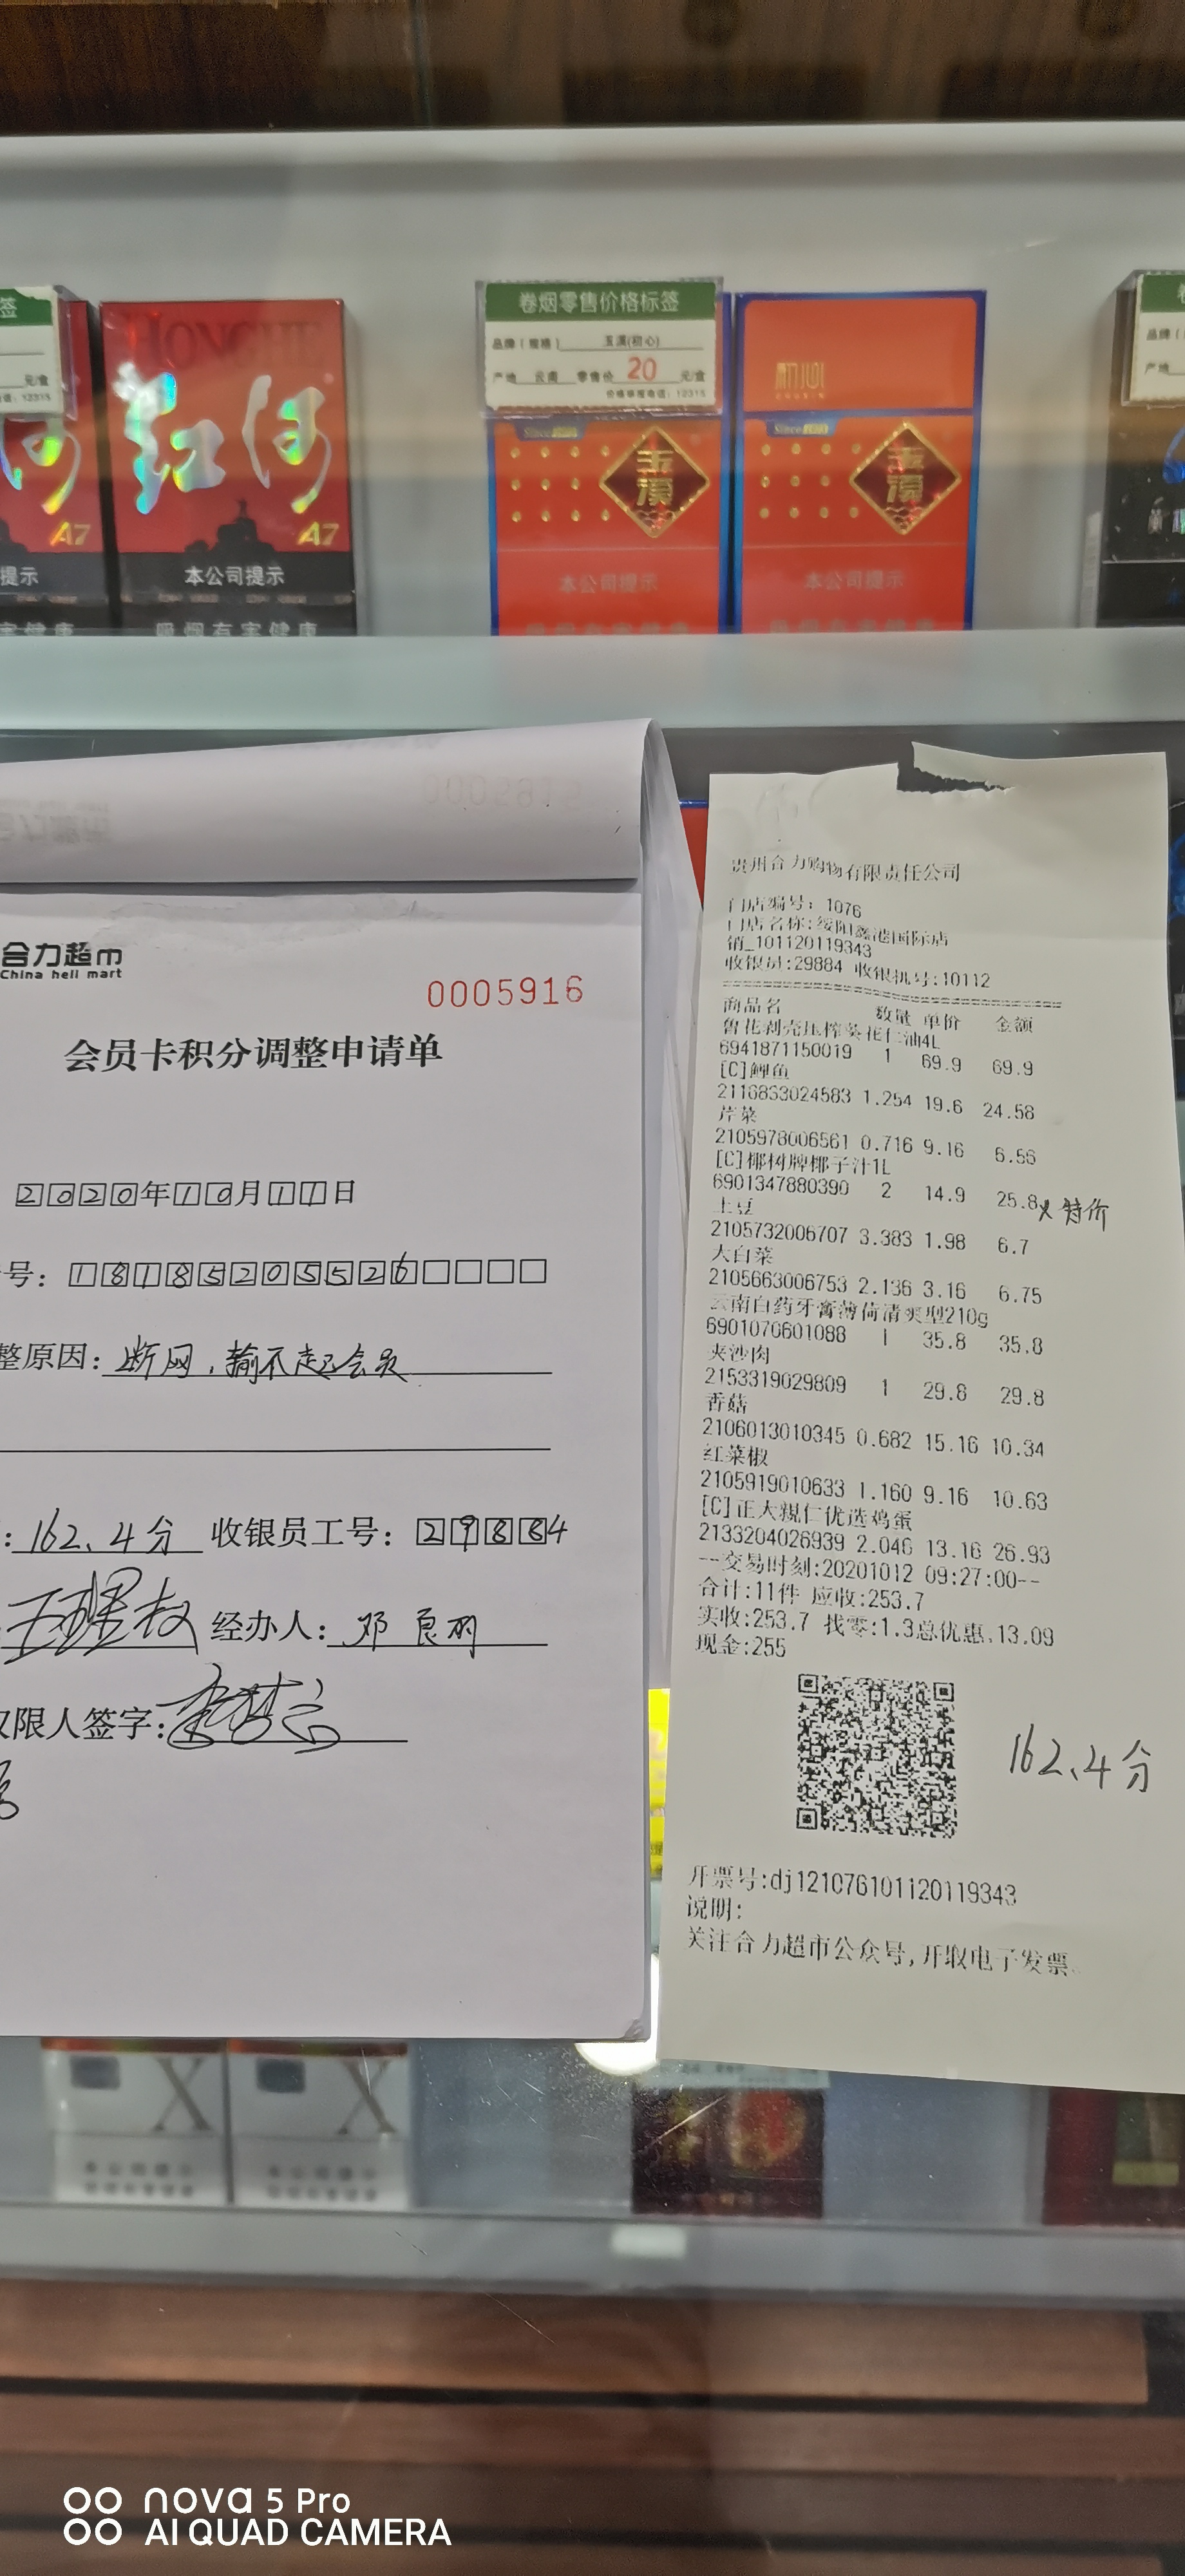 签
元/盒
话：12315
HONGHE
红河
A7
A7
提示
本公司提示
害健康
吸烟有害健康
卷烟零售价格标签
品牌（规格） 玉溪(初心)
产地 云南 零售价 20 元/盒
价格举报电话：12315
初心
Since
Since
玉溪
玉溪
本公司提示
本公司提示
品牌
产地
合力超市
China heli mart
0005916
会员卡积分调整申请单
2020年10月11日
号：18185205526
整原因：断网，输不起会员
：162.4分 收银员工号：29884
经办人：邓良羽
权限人签字：
贵州合力购物有限责任公司
门店编号：1076
门店名称:绥阳鑫港国际店
销_101120119343
收银员:29884 收银机号:10112
商品名 数量 单价 金额
鲁花剥壳压榨葵花仁油4L
6941871150019 1 69.9 69.9
[C]鲤鱼
2116833024583 1.254 19.6 24.58
芹菜
2105978006561 0.716 9.16 6.56
[C]椰树牌椰子汁1L
6901347880390 2 14.9 25.8 x 特价
土豆
2105732006707 3.383 1.98 6.7
大白菜
2105663006753 2.136 3.16 6.75
云南白药牙膏薄荷清爽型210g
6901070601088 1 35.8 35.8
夹沙肉
2153319029809 1 29.8 29.8
香菇
2106013010345 0.682 15.16 10.34
红菜椒
2105919010633 1.160 9.16 10.63
[C]正大親仁优选鸡蛋
2133204026939 2.046 13.16 26.93
--交易时刻:20201012 09:27:00--
合计:11件 应收:253.7
实收:253.7 找零:1.3总优惠.13.09
现金:255
162.4分
开票号:dj121076101120119343
说明:
关注合力超市公众号,开取电子发票
X
X
nova 5 Pro
AI QUAD CAMERA